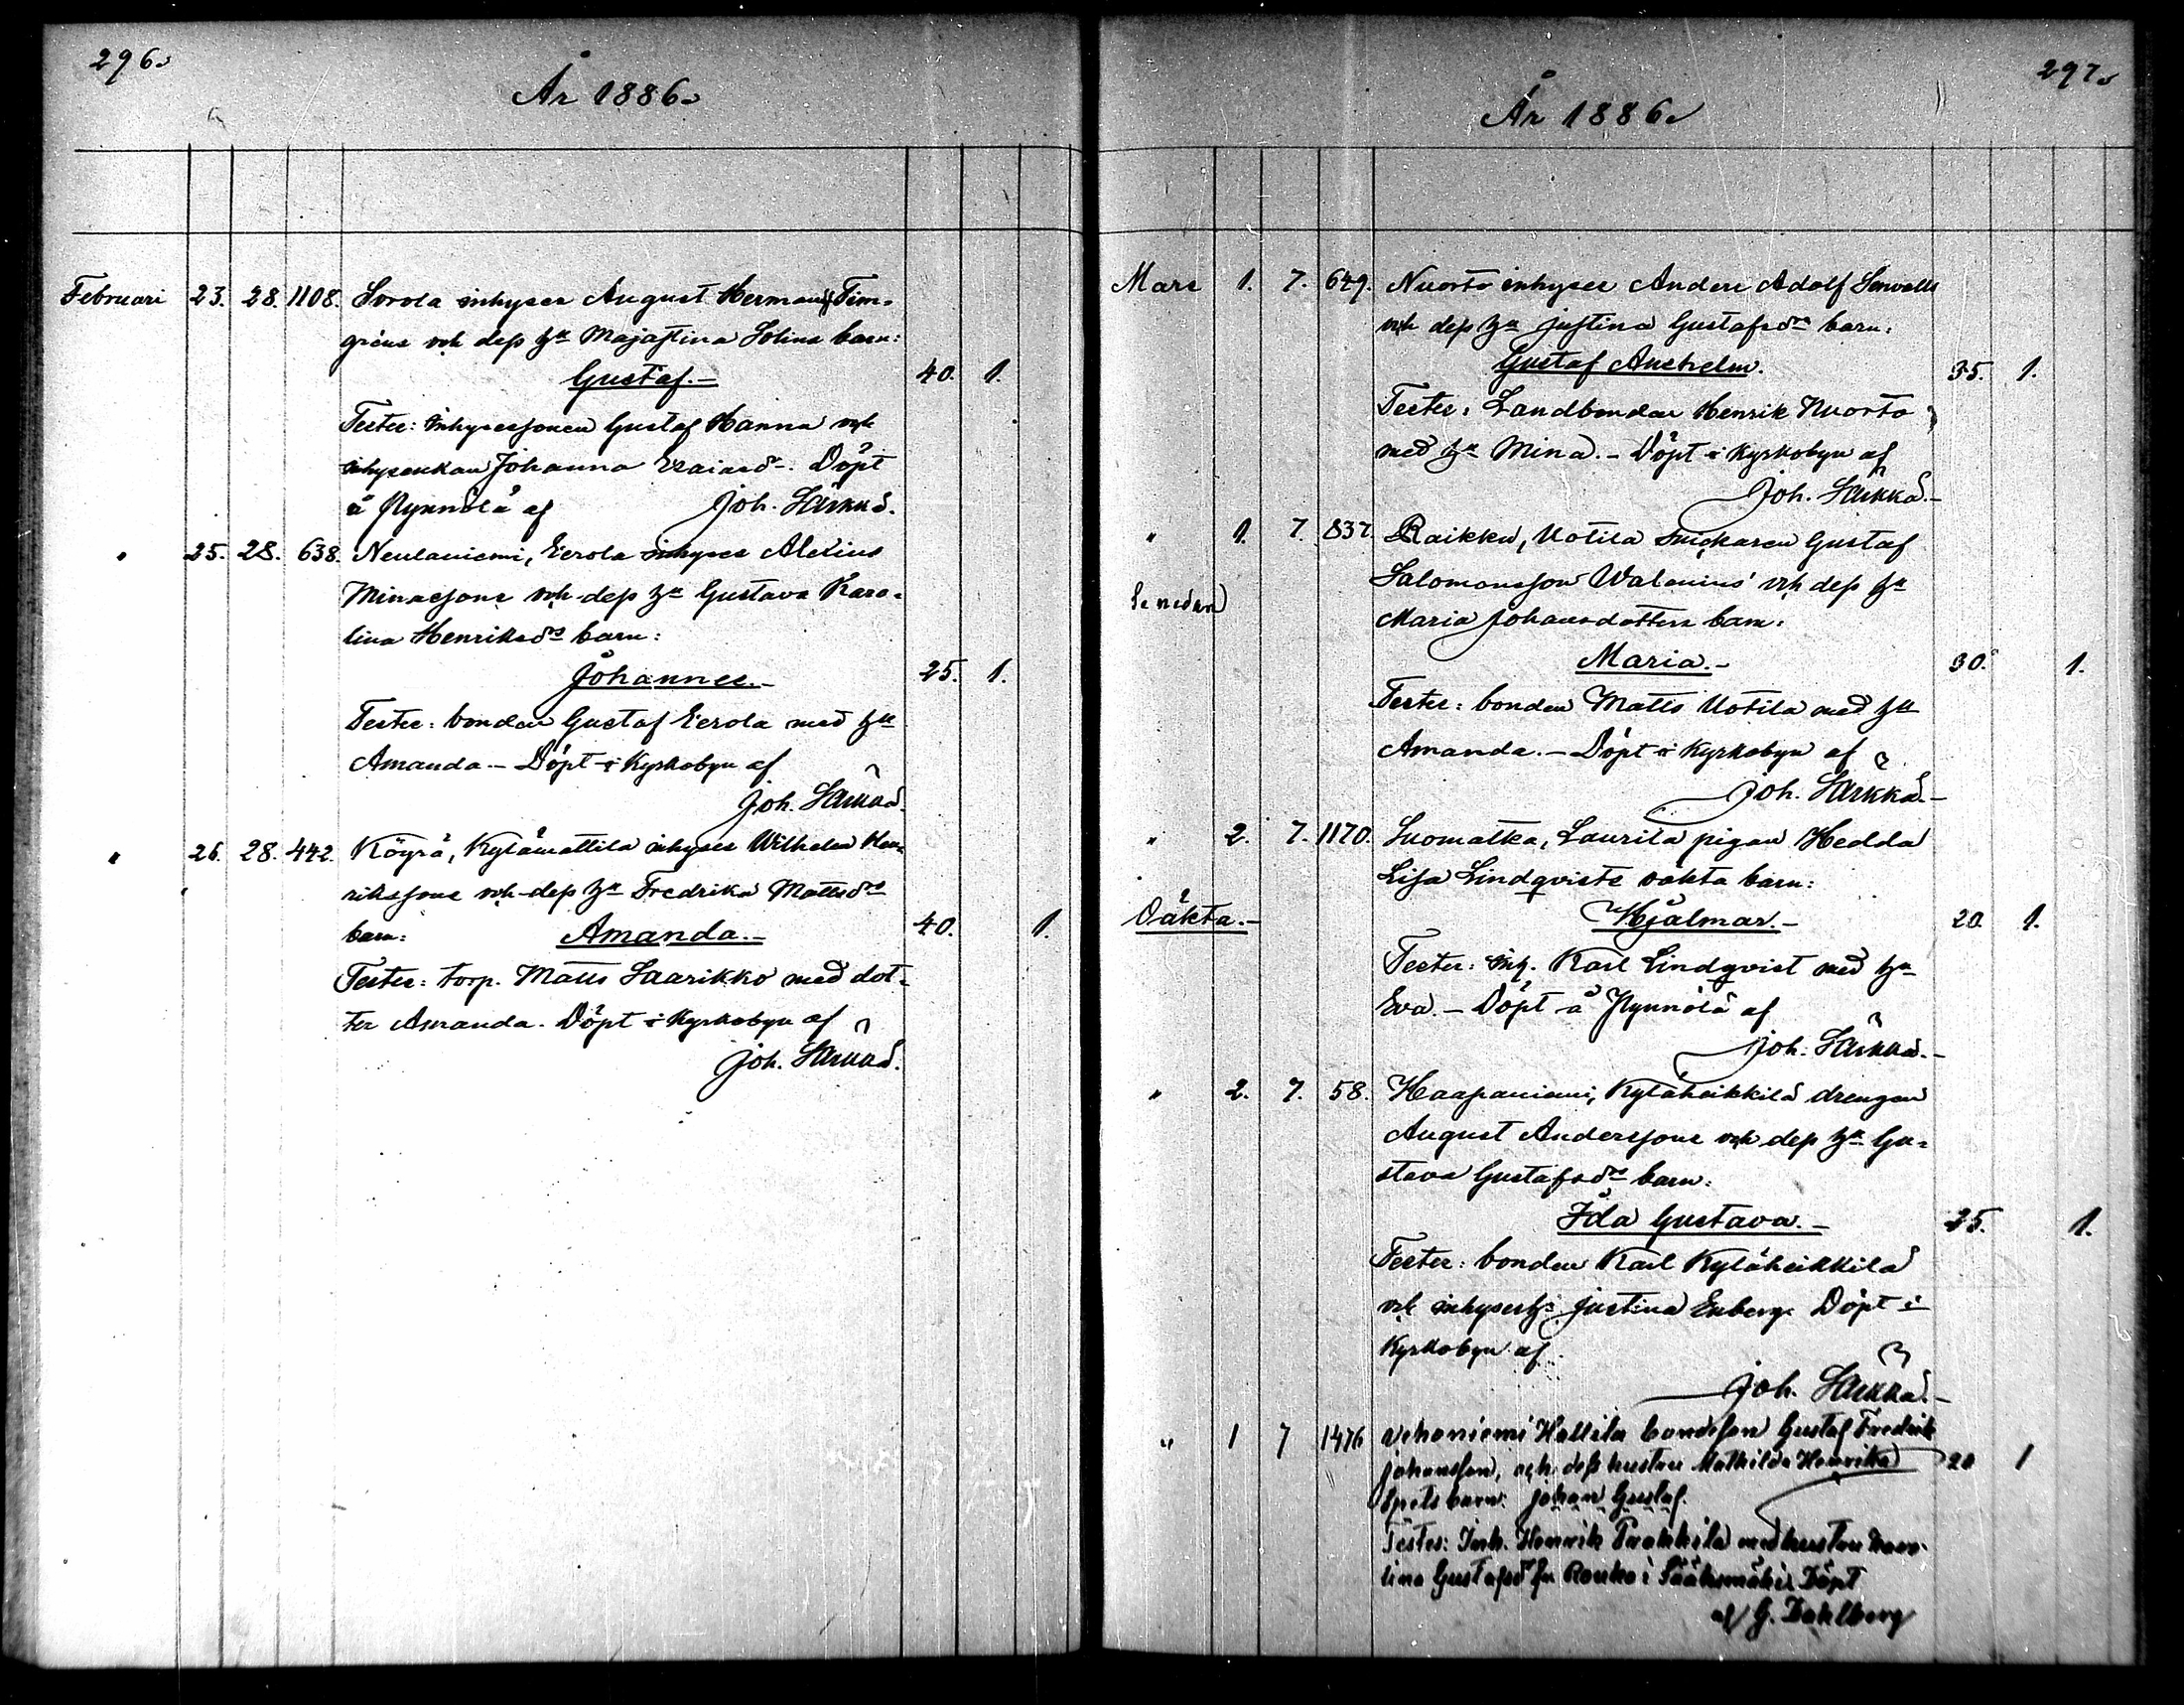 296.
År 1886.
Februari 23. 28. 1108. Sorola inhyses August Herman Tim-
gréns och dess h:u Majastina Solins barn:
Gustaf.— 40. 1.
Testes: Inhysessonen Gustaf Hanna och
inhysenkan Johanna Esaiasd:r. Döpt
å Rynnölä af Joh. Särkkä.
" 25. 28. 638. Neulaniemi, Eerola inhyses Alexius
Minassons och dess h:u Gustava Karo-
lina Henriksd:rs barn:
Johannes.— 25. 1.
Testes: bonden Gustaf Eerola med h:u
Amanda.— Döpt i Kyrkobyn af
Joh. Särkkä.
" 26. 28. 442. Köyrä, Kylämattila inhyses Wilhelm Hen-
rikssons och dess h:u Fredrika Mattsd:rs
barn: Amanda.— 40. 1.
Testes: torp. Matts Saarikko med dot-
ter Amanda. Döpt i Kyrkobyn af
Joh. Särkkä.
297.
År 1886.
Mars 1. 7. 649. Nuorto inhyses Anders Adolf
och dess h:u Justina Gustafsd:rs barn:
Gustaf Anshelm. 35. 1.
Testes: Landbonden Henrik Nuorto
med h:u Mina.— Döpt i Kyrkobyn af
Joh. Särkkä.—
" 1. 7. 837. Raikku, Uotila Gustaf
Salomonsson Walenius' och dess h:u
Maria Johansdotters barn:
Maria.— 30. 1.
Testes: bonden Matts Uotila med h:u
Amanda.— Döpt i Kyrkobyn af
Joh. Särkkä.—
" 2. 7. 1170. Suomatka, Laurila pigan Hedda
Lisa Lindqvists oäkta barn:
Oäkta.— Hjalmar.— 20. 1.
Testes: inh. Karl Lindqvist med h:u
Eva.— Döpt å Rynnölä af
Joh. Särkkä.—
" 2. 7. 58. Haapaniemi, Kyläheikkilä drengen
August Anderssons och dess h:u Gu-
stava Gustafsd:rs barn:
Ida Gustava.— 25. 1.
Testes: bonden Karl Kyläheikkilä
och Justina Enberg. Döpt i
Kyrkobyn af
Joh. Särkkä.—
" 1 7 1476 Vehoniemi Hallila bondeson Gustaf Fredrik
Johansson, och dess hustru Mathilda Henrika 20 1
Spets barn: Johan Gustaf.
Testes: Inh. Henrik Prakkila med hustru Karo-
lina Gustafsd:r fr Rauko i Sääksmäki. Döpt
af G. Dahlberg